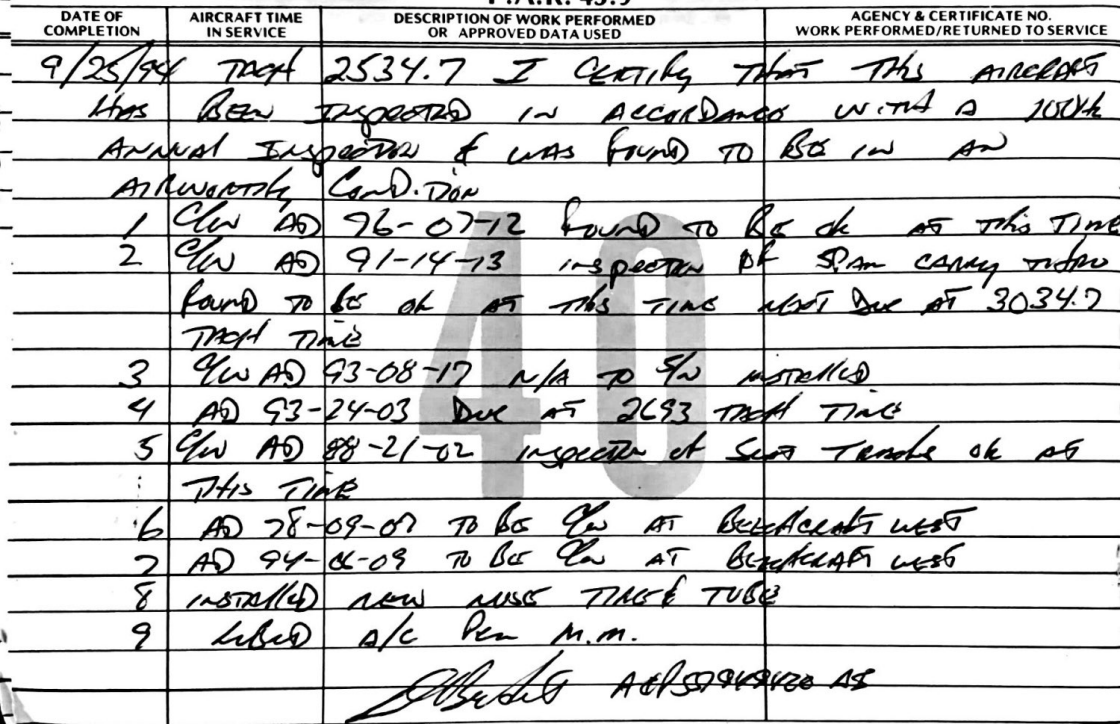 F.A.R. 43.9
DATE OF COMPLETION
AIRCRAFT TIME IN SERVICE
DESCRIPTION OF WORK PERFORMED OR APPROVED DATA USED
AGENCY & CERTIFICATE NO. WORK PERFORMED/RETURNED TO SERVICE
40
9/25/94 TACH 2534.7 I CERTIFY THAT THIS AIRCRAFT
HAS BEEN INSPECTED IN ACCORDANCE WITH A 100HR
ANNUAL INSPECTION & WAS FOUND TO BE IN AN
AIRWORTHY CONDITION
1 C/W AD 76-07-12 FOUND TO BE OK AT THIS TIME
2 C/W AD 91-14-13 INSPECTION OF SPAR CARRY THRU
FOUND TO BE OK AT THIS TIME NEXT DUE AT 3034.7
TACH TIME
3 C/W AD 93-08-17 N/A TO S/N INSTALLED
4 AD 93-24-03 DUE AT 2693 TACH TIME
5 C/W AD 88-21-02 INSPECTION OF SEAT TRACKS OK AT
THIS TIME
6 AD 78-09-07 TO BE C/W AT BEECHCRAFT WEST
7 AD 94- -09 TO BE C/W AT BEECHCRAFT WEST
8 INSTALLED NEW NOSE TIRE & TUBE
9 LUBED A/C PER M.M.
A&P